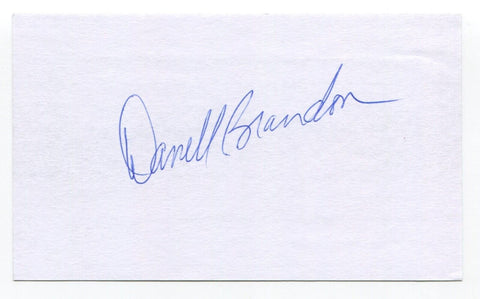 Darrell Brandon